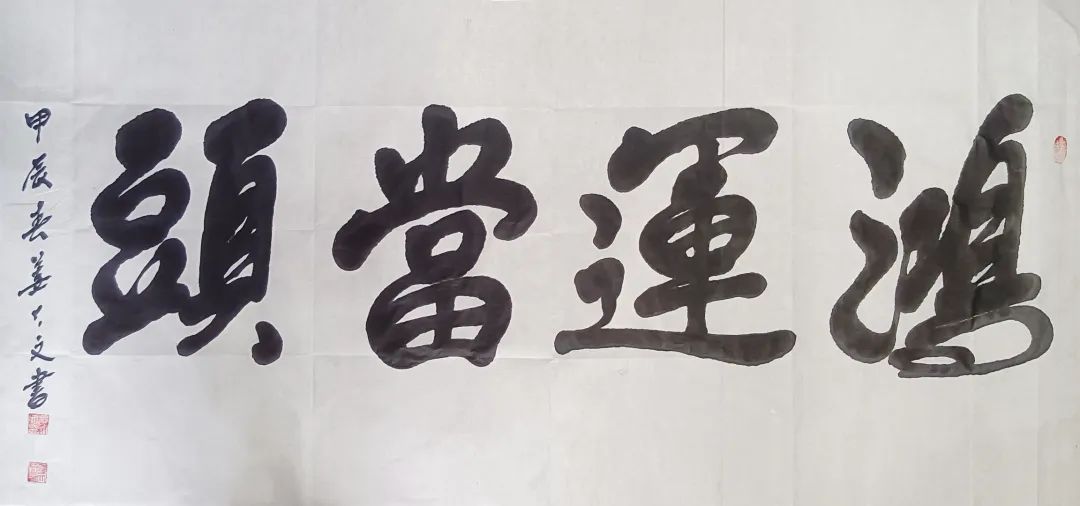 鴻運當頭
甲辰春姜大文書